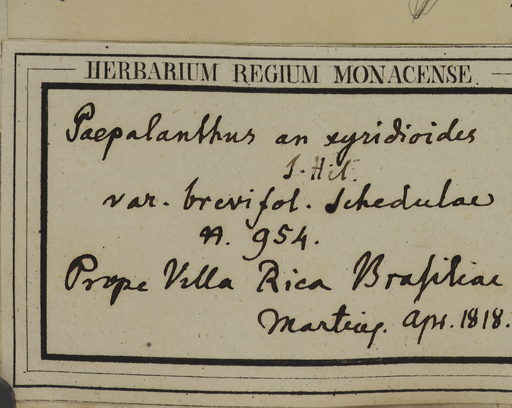 HERBARIUM REGIUM MONACENSE
Paepalanthus an xyridioides
S. Hil.
var. brevifol. schedulae
n. 954.
Prope Villa Rica Brasiliae
Martius. Apr. 1818.